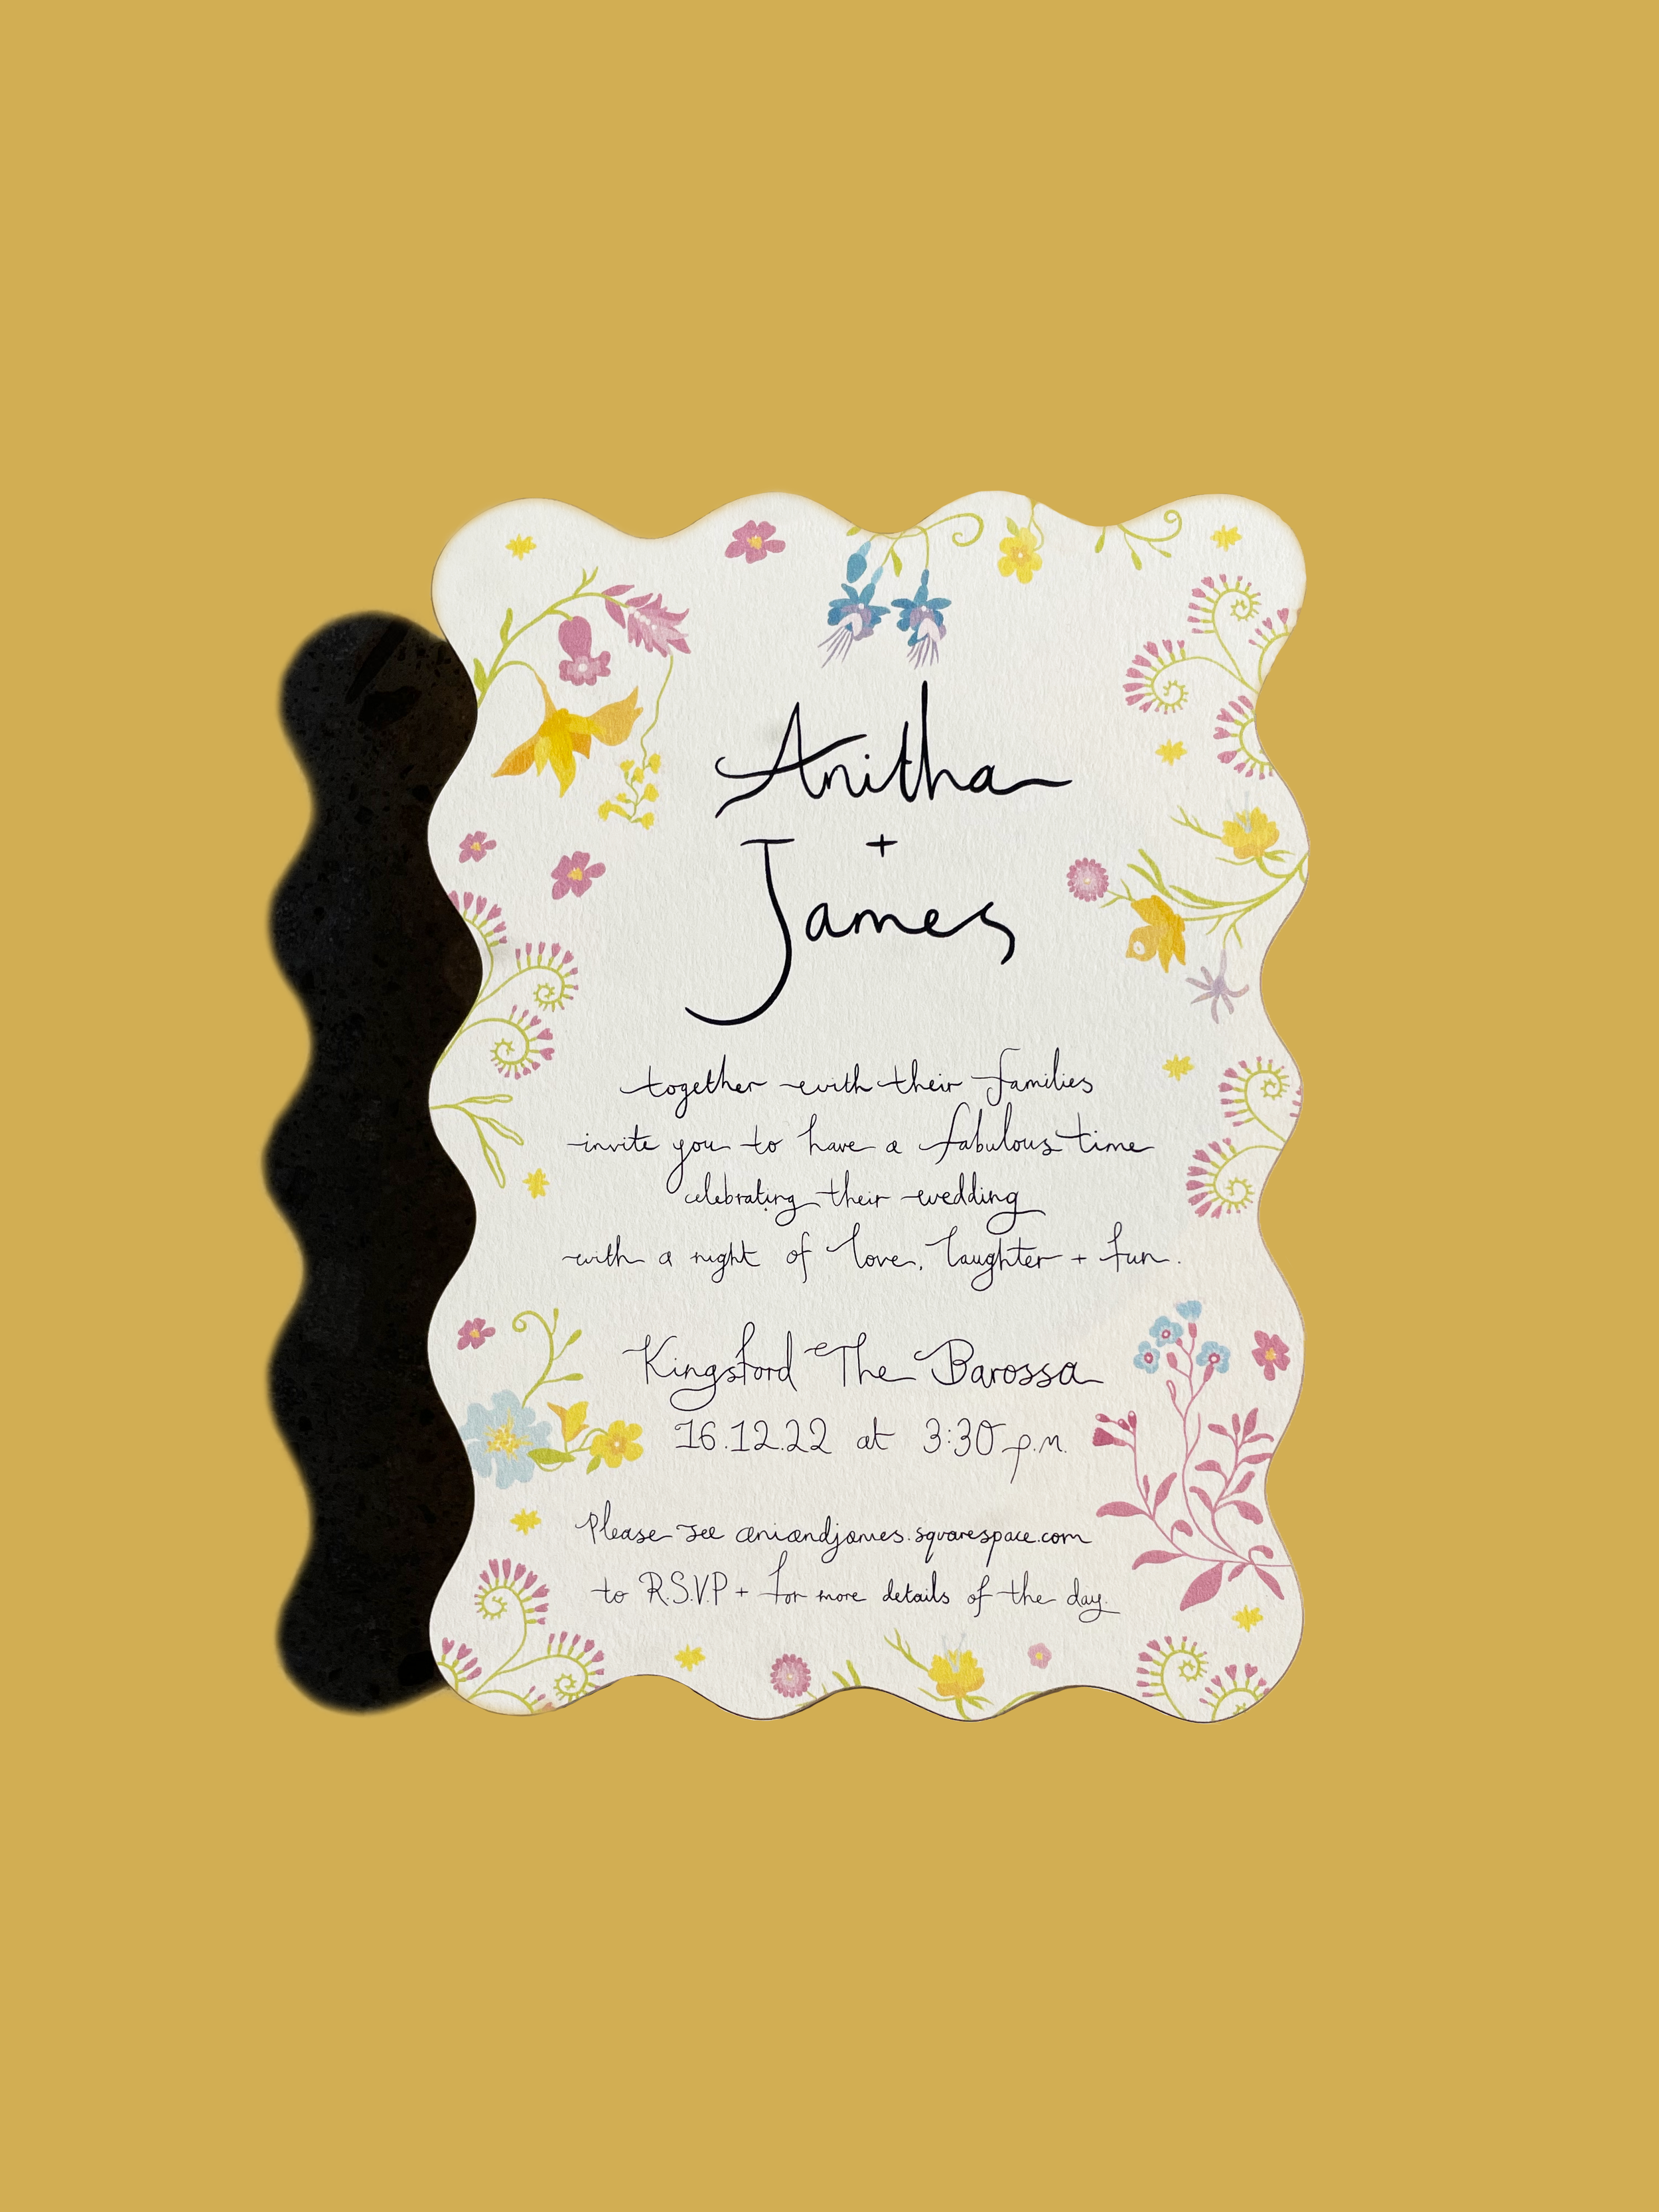 Anitha
+
James
together with their families
invite you to have a fabulous time
celebrating their wedding
with a night of love, laughter + fun.
Kingsford The Barossa
16.12.22 at 3:30 p.m.
Please see aniandjames.squarespace.com
to R.S.V.P + for more details of the day.